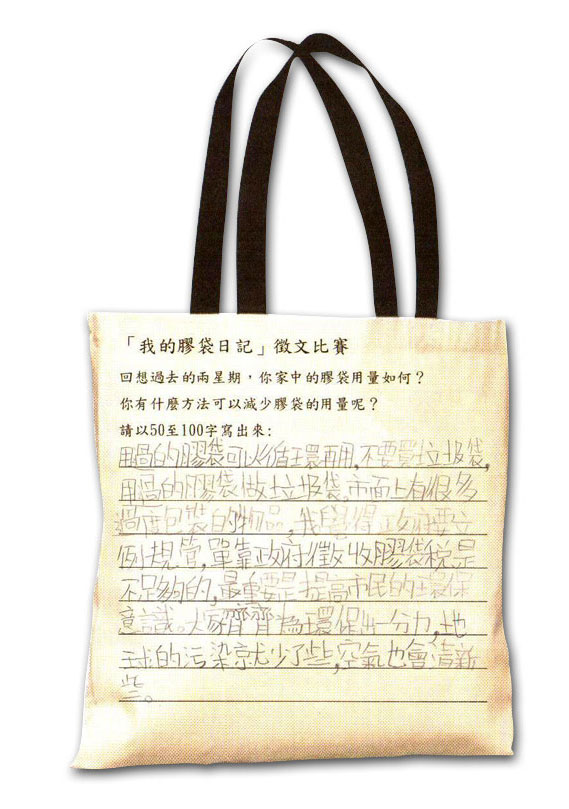 「我的膠袋日記」徵文比賽
回想過去的兩星期，你家中的膠袋用量如何？
你有什麼方法可以減少膠袋的用量呢？
請以50至100字寫出來:
用過的膠袋可以循環再用,不要買垃圾袋,
用過的膠袋做垃圾袋,市面上有很多
過度包裝的物品,我覺得政府要立
例規管,單靠政府徵收膠袋稅是
不足夠的,最重要是提高市民的環保
意識。大家齊齊為環保出一分力,地
球的污染就少了些,空氣也會清新
些。